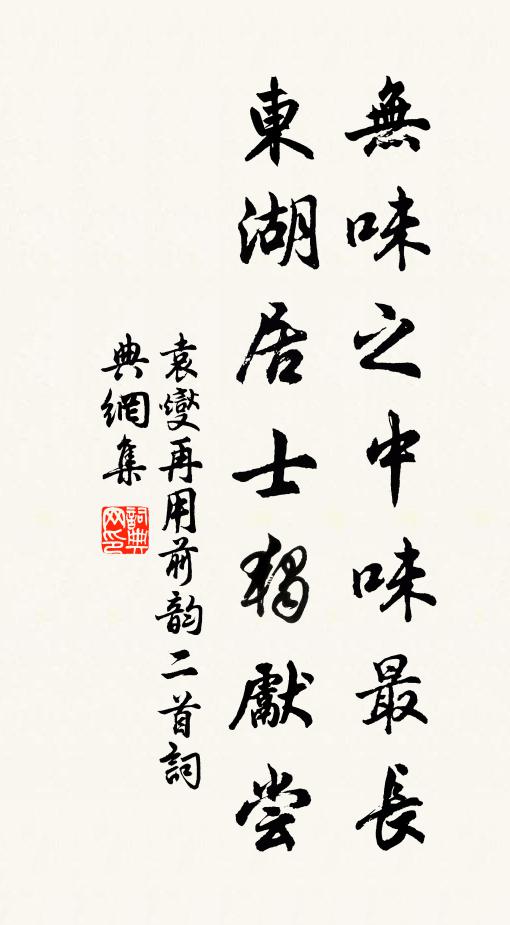 無味之中味最長
東湖居士獨獻尝
袁燮再用前韵二首詞
典網集
詞典
网印